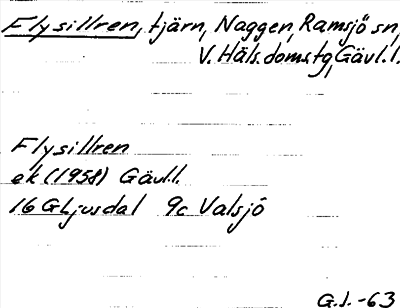 Flysillren, tjärn, Naggen, Ramsjö sn,
V. Häls. doms.tg, Gävl.l.
Flysillren
ek (1958) Gävl.l.
16 G Ljusdal 9c Valsjö
G.J. -63